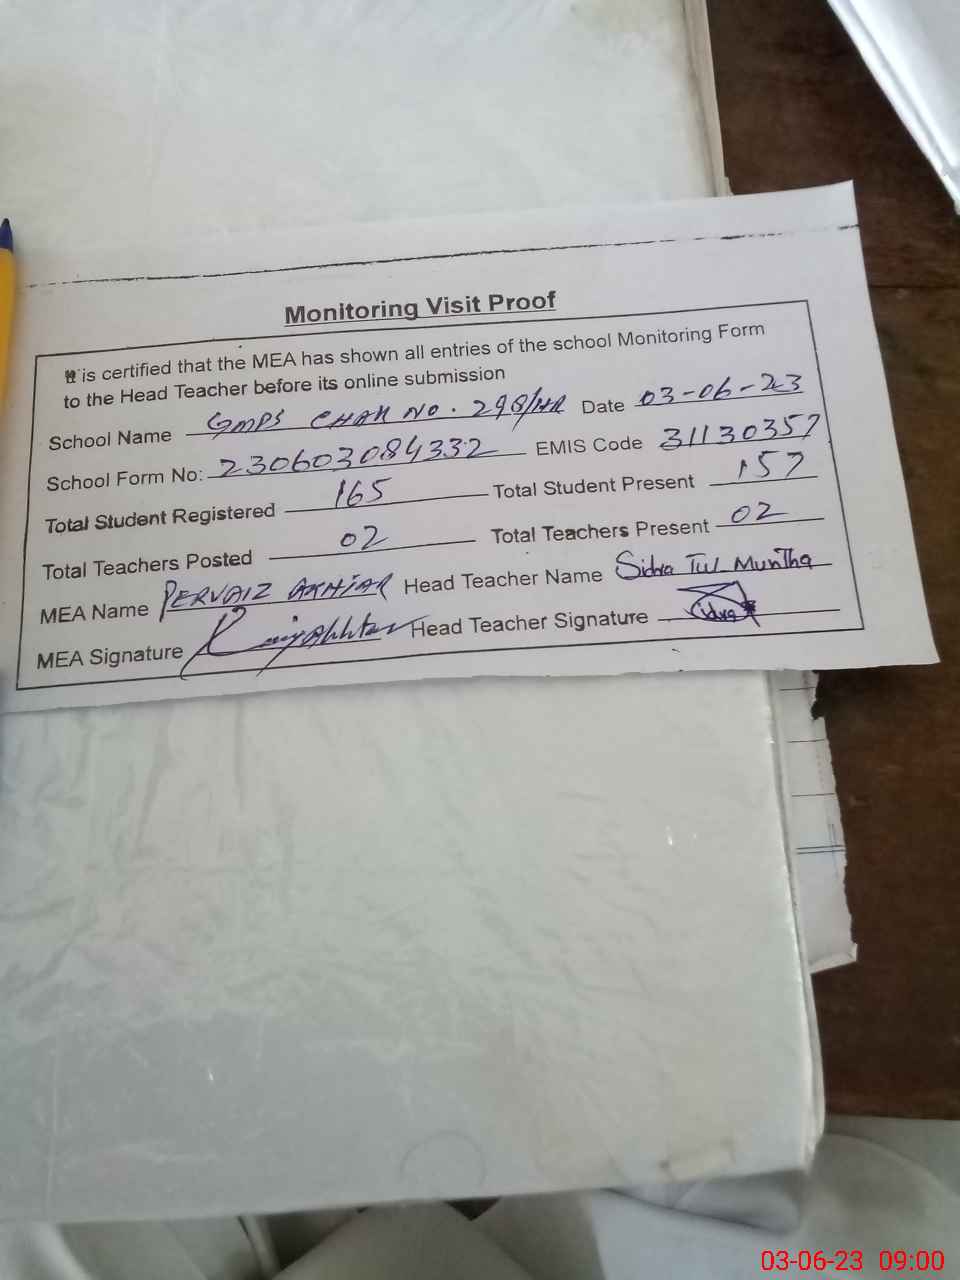 Monitoring Visit Proof
It is certified that the MEA has shown all entries of the school Monitoring Form
to the Head Teacher before its online submission
School Name GMPS CHAK NO. 298/HR Date 03-06-23
School Form No: 230603084332 EMIS Code 31130357
Total Student Registered 165 Total Student Present 157
Total Teachers Posted 02 Total Teachers Present 02
MEA Name PERVAIZ AKHTAR Head Teacher Name Sidra Tul Muntha
MEA Signature Head Teacher Signature Sidra
03-06-23 09:00